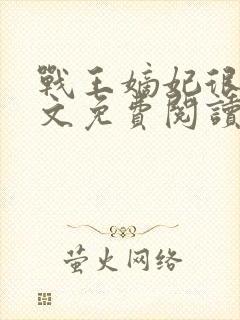 戰王嫡妃很
文免費閱讀
萤火网络